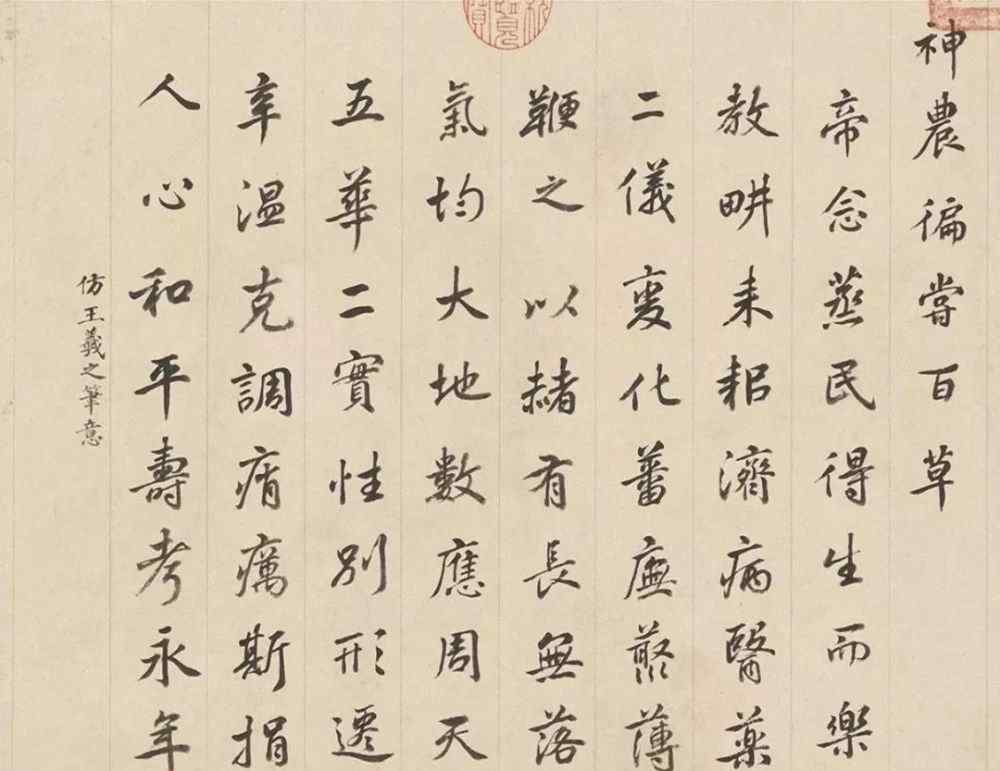 神農徧嘗百草
帝念蒸民得生而樂
教畊耒耜濟病醫藥
二儀變化蕃廡藂薄
鞭之以赭有長無落
氣均大地數應周天
五華二實性別形遷
辛温克調痟癘斯捐
人心和平壽考永年
仿王羲之筆意